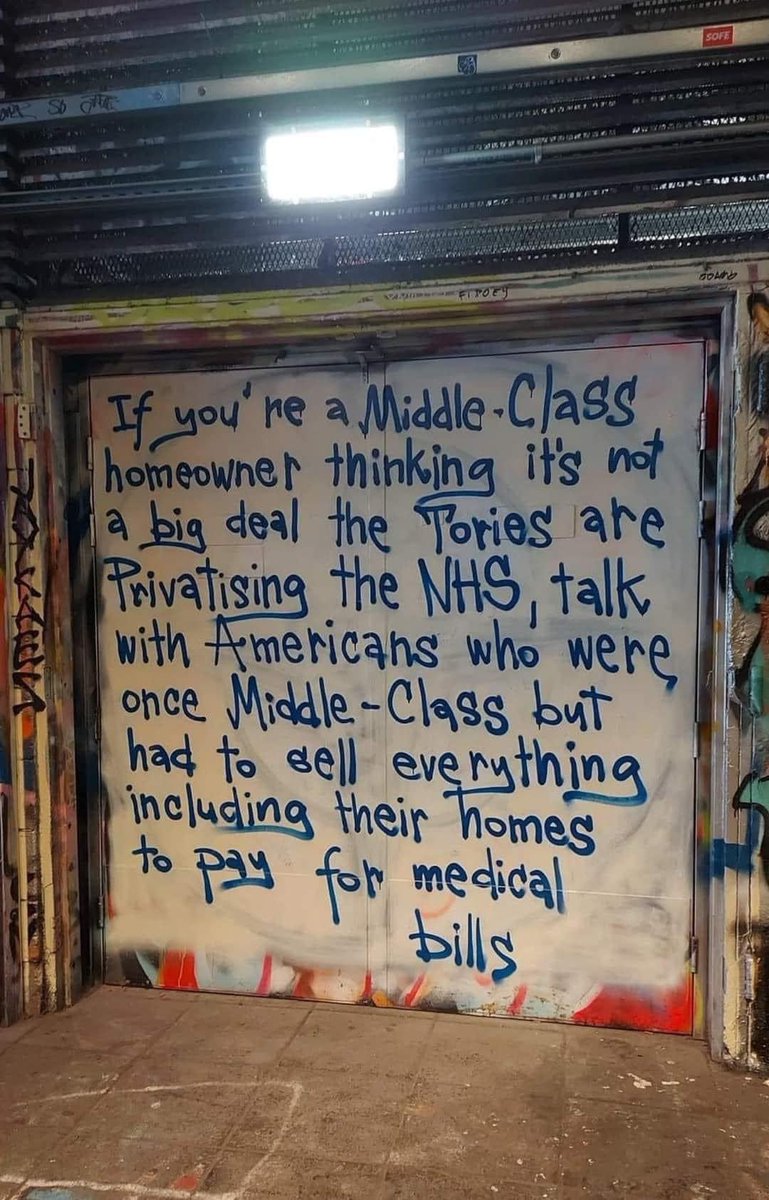 SOFE
FIDOEY
If you're a Middle-Class
homeowner thinking it's not
a big deal the Tories are
Privatising the NHS, talk
with Americans who were
once Middle-Class but
had to sell everything
including their homes
to pay for medical
bills